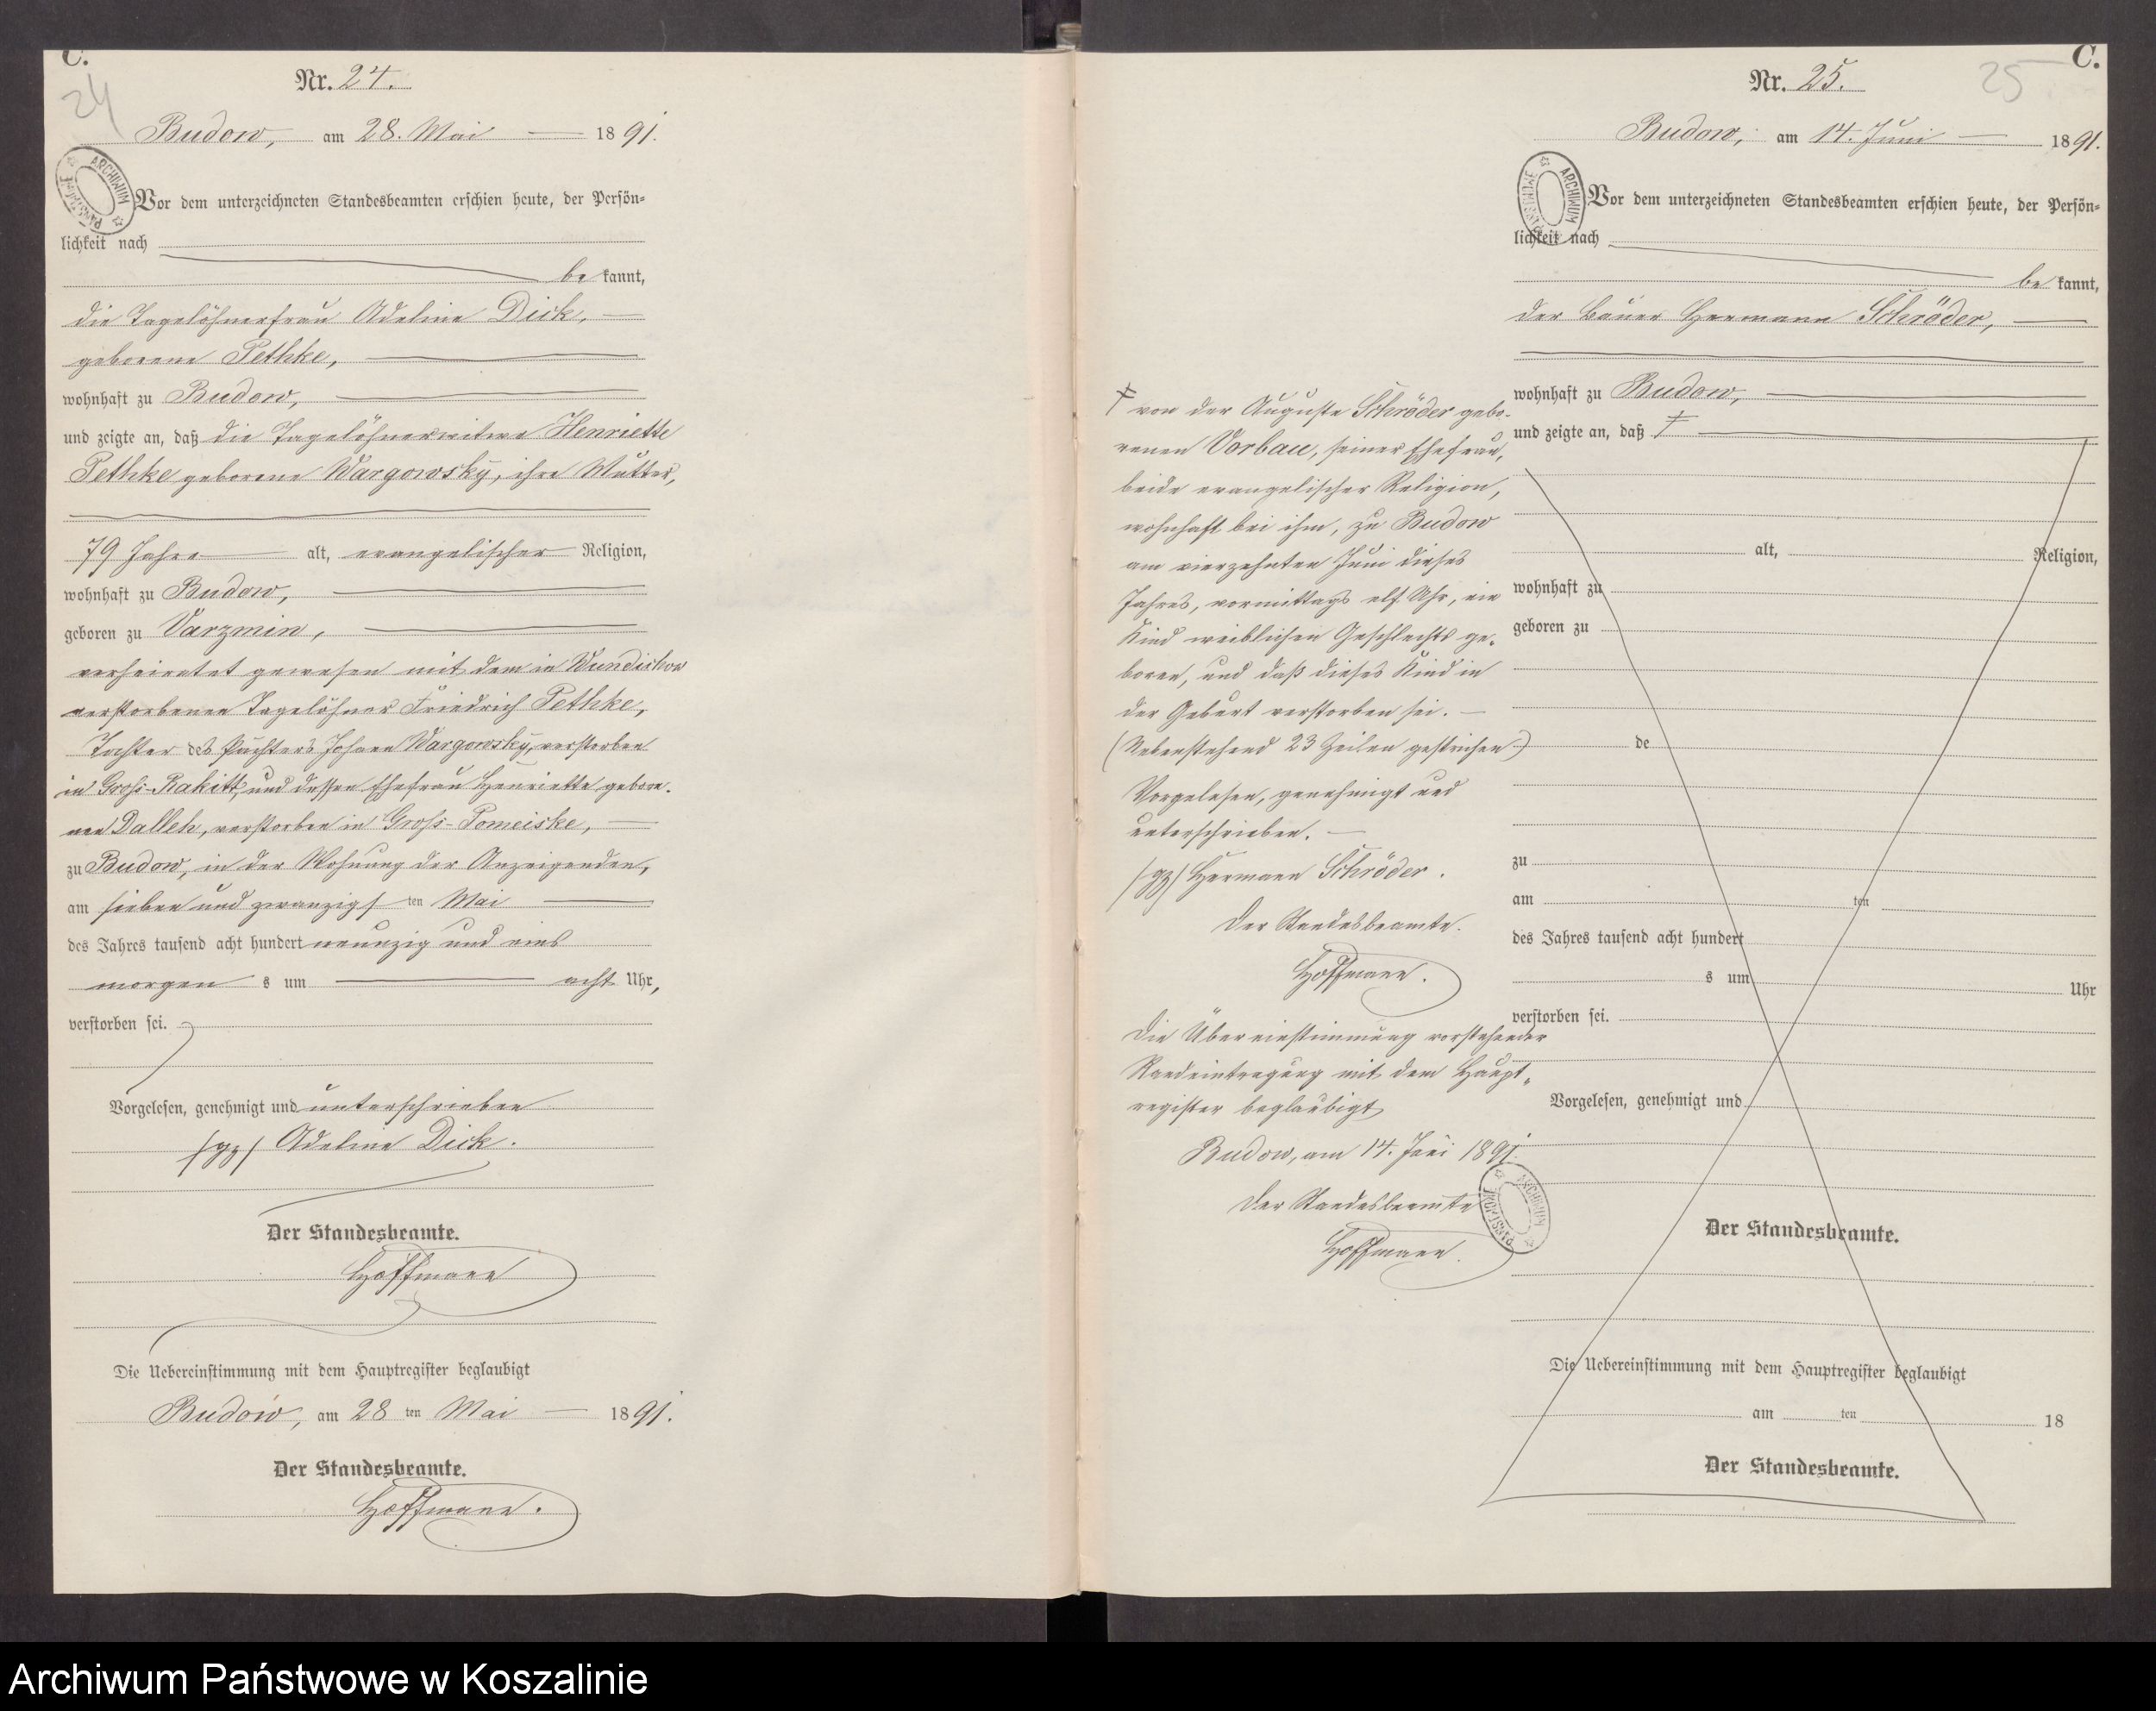 C.
24
Nr. 24.
Budow, am 28. Mai 1891.
ARCHIWUM PAŃSTWOWE
Vor dem unterzeichneten Standesbeamten erschien heute, der Persön=
lichkeit nach
be kannt,
die Tagelöhnerfrau Adeline Dick,
geborene Pethke,
wohnhaft zu Budow,
und zeigte an, daß die Tagelöhnerwitwe Henriette
Pethke geborene Wargowsky, ihre Mutter,
79 Jahre alt, evangelischer Religion,
wohnhaft zu Budow,
geboren zu Varzmin,
verheiratet gewesen mit dem in Wundichow
verstorbenen Tagelöhner Friedrich Pethke,
Tochter des Pächters Johann Wargowsky, verstorben
in Groß-Rakitt, und dessen Ehefrau Henriette gebore-
nen Dalleh, verstorben in Groß-Pomeiske,
zu Budow, in der Wohnung der Anzeigenden,
am sieben und zwanzigs ten Mai
des Jahres tausend acht hundert neunzig und eins
morgen s um acht Uhr,
verstorben sei.
Vorgelesen, genehmigt und unterschrieben
/gz/ Adeline Dick.
Der Standesbeamte.
Hoffmann
Die Uebereinstimmung mit dem Hauptregister beglaubigt
Budow, am 28 ten Mai 1891.
Der Standesbeamte.
Hoffmann.
C.
25
Nr. 25.
Budow, am 14. Juni 1891.
ARCHIWUM PAŃSTWOWE
Vor dem unterzeichneten Standesbeamten erschien heute, der Persön=
lichkeit nach
be kannt,
der Bauer Hermann Schröder,
wohnhaft zu Budow,
und zeigte an, daß ‡
‡ von der Auguste Schröder gebo-
renen Vorbau, seiner Ehefrau,
beide evangelischer Religion,
wohnhaft bei ihm, zu Budow
am vierzehnten Juni dieses
Jahres, vormittags elf Uhr, ein
Kind weiblichen Geschlechts ge-
boren, und daß dieses Kind in
der Geburt verstorben sei.
(Nebenstehend 23 Zeilen gestrichen.)
Vorgelesen, genehmigt und
unterschrieben.
/gz/ Hermann Schröder.
Der Standesbeamte.
Hoffmann.
Die Übereinstimmung vorstehender
Randeintragung mit dem Haupt-
register beglaubigt
Budow, am 14. Juni 1891.
Der Standesbeamte
Hoffmann.
ARCHIWUM PAŃSTWOWE
alt, Religion,
wohnhaft zu
geboren zu
de
zu
am ten
des Jahres tausend acht hundert
s um Uhr
verstorben sei.
Vorgelesen, genehmigt und
Der Standesbeamte.
Die Uebereinstimmung mit dem Hauptregister beglaubigt
am ten 18
Der Standesbeamte.
Archiwum Państwowe w Koszalinie